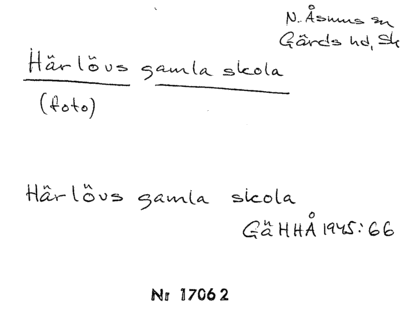 N. Åsums sn
Gärds hd, Sk
Härlövs gamla skola
(foto)
Härlövs gamla skola
GäHHÅ 1945:66
Nr 17062